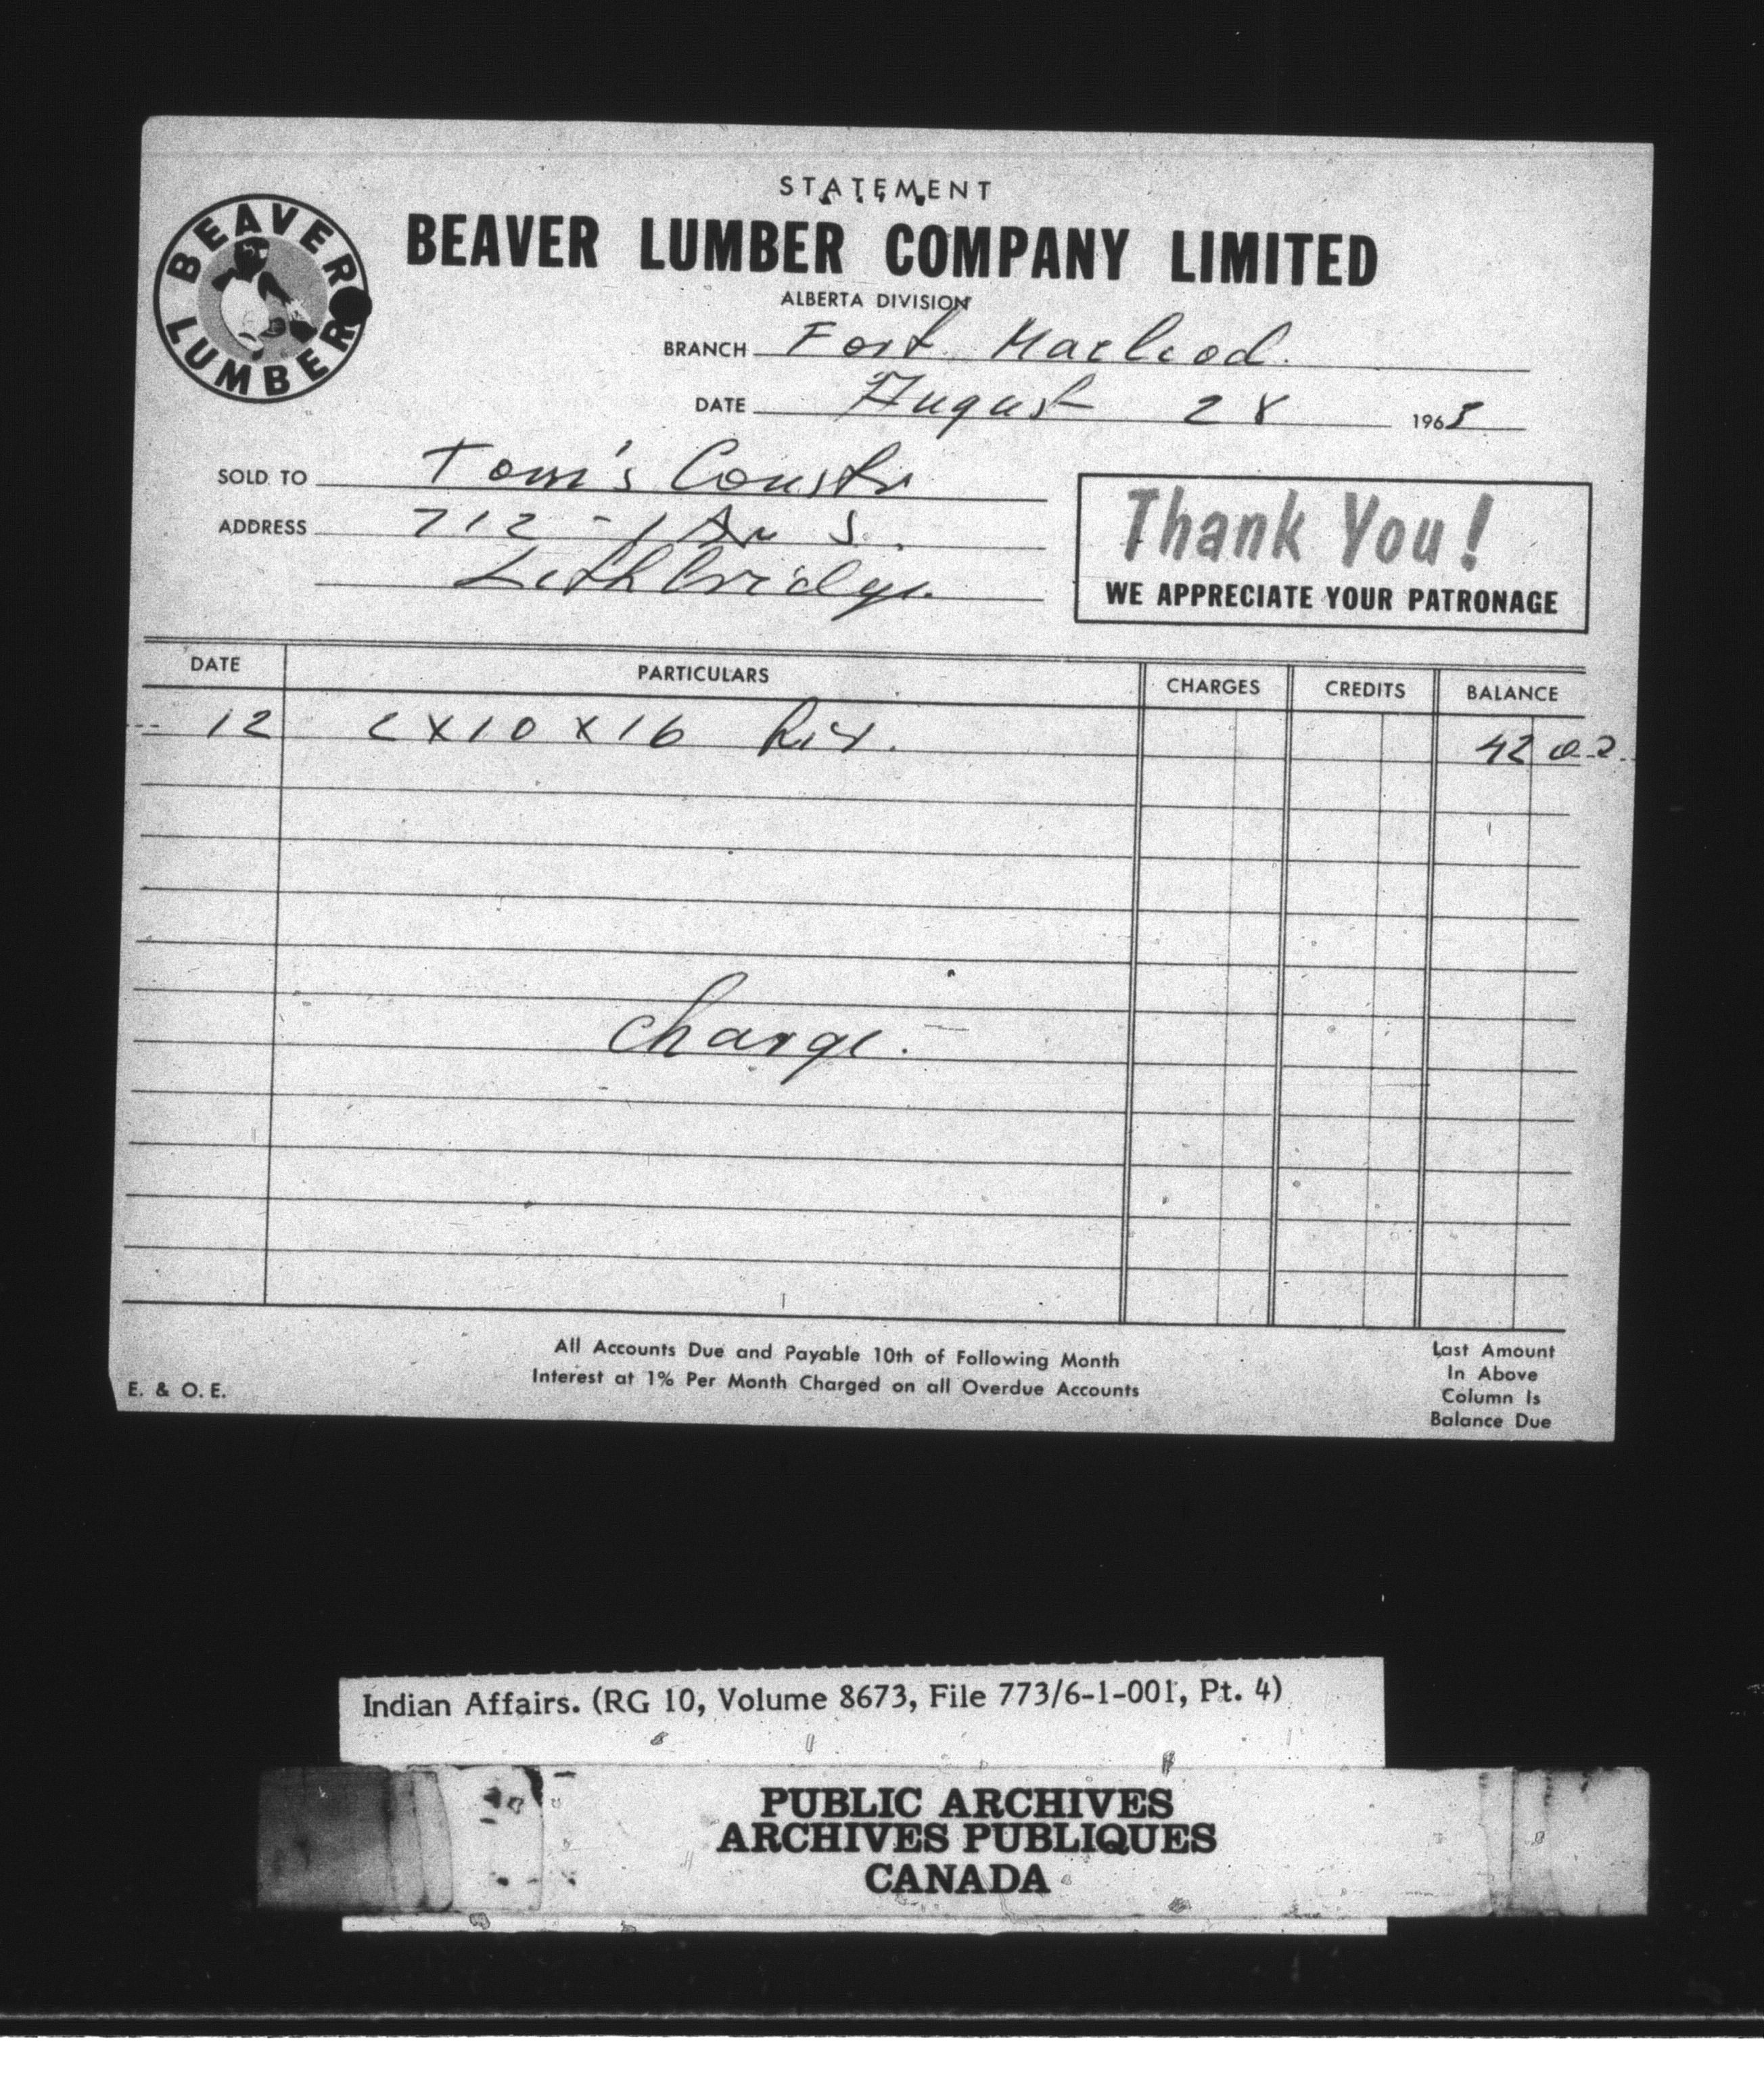 STATEMENT
BEAVER LUMBER
BEAVER LUMBER COMPANY LIMITED
ALBERTA DIVISION
BRANCH Fort Macleod.
DATE August 28 1965
SOLD TO Tom's Constr
ADDRESS 712 - 1 Av S.
Lethbridge.
Thank You!
WE APPRECIATE YOUR PATRONAGE
DATE PARTICULARS CHARGES CREDITS BALANCE
12 2 X 10 X 16 42 02
charge.
All Accounts Due and Payable 10th of Following Month
Interest at 1% Per Month Charged on all Overdue Accounts
E. & O. E.
Last Amount
In Above
Column Is
Balance Due
Indian Affairs. (RG 10, Volume 8673, File 773/6-1-001, Pt. 4)
PUBLIC ARCHIVES
ARCHIVES PUBLIQUES
CANADA